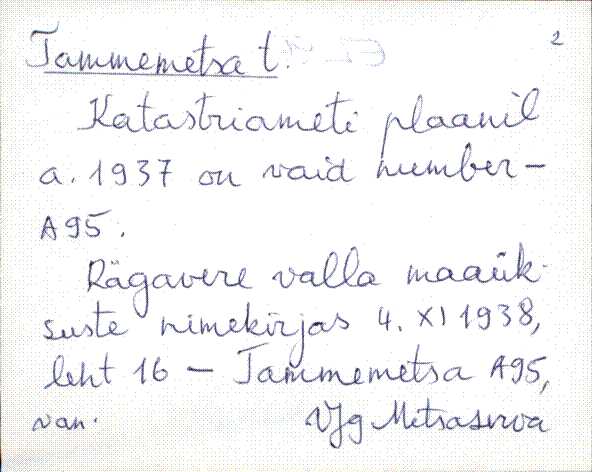 2
Tammemetsa t.
Katastriameti plaanil
a. 1937 on vaid number –
A95.
Rägavere valla maaük-
suste nimekirjas 4. XI 1938,
leht 16 – Tammemetsa A95,
van. Vjg Metsaserva